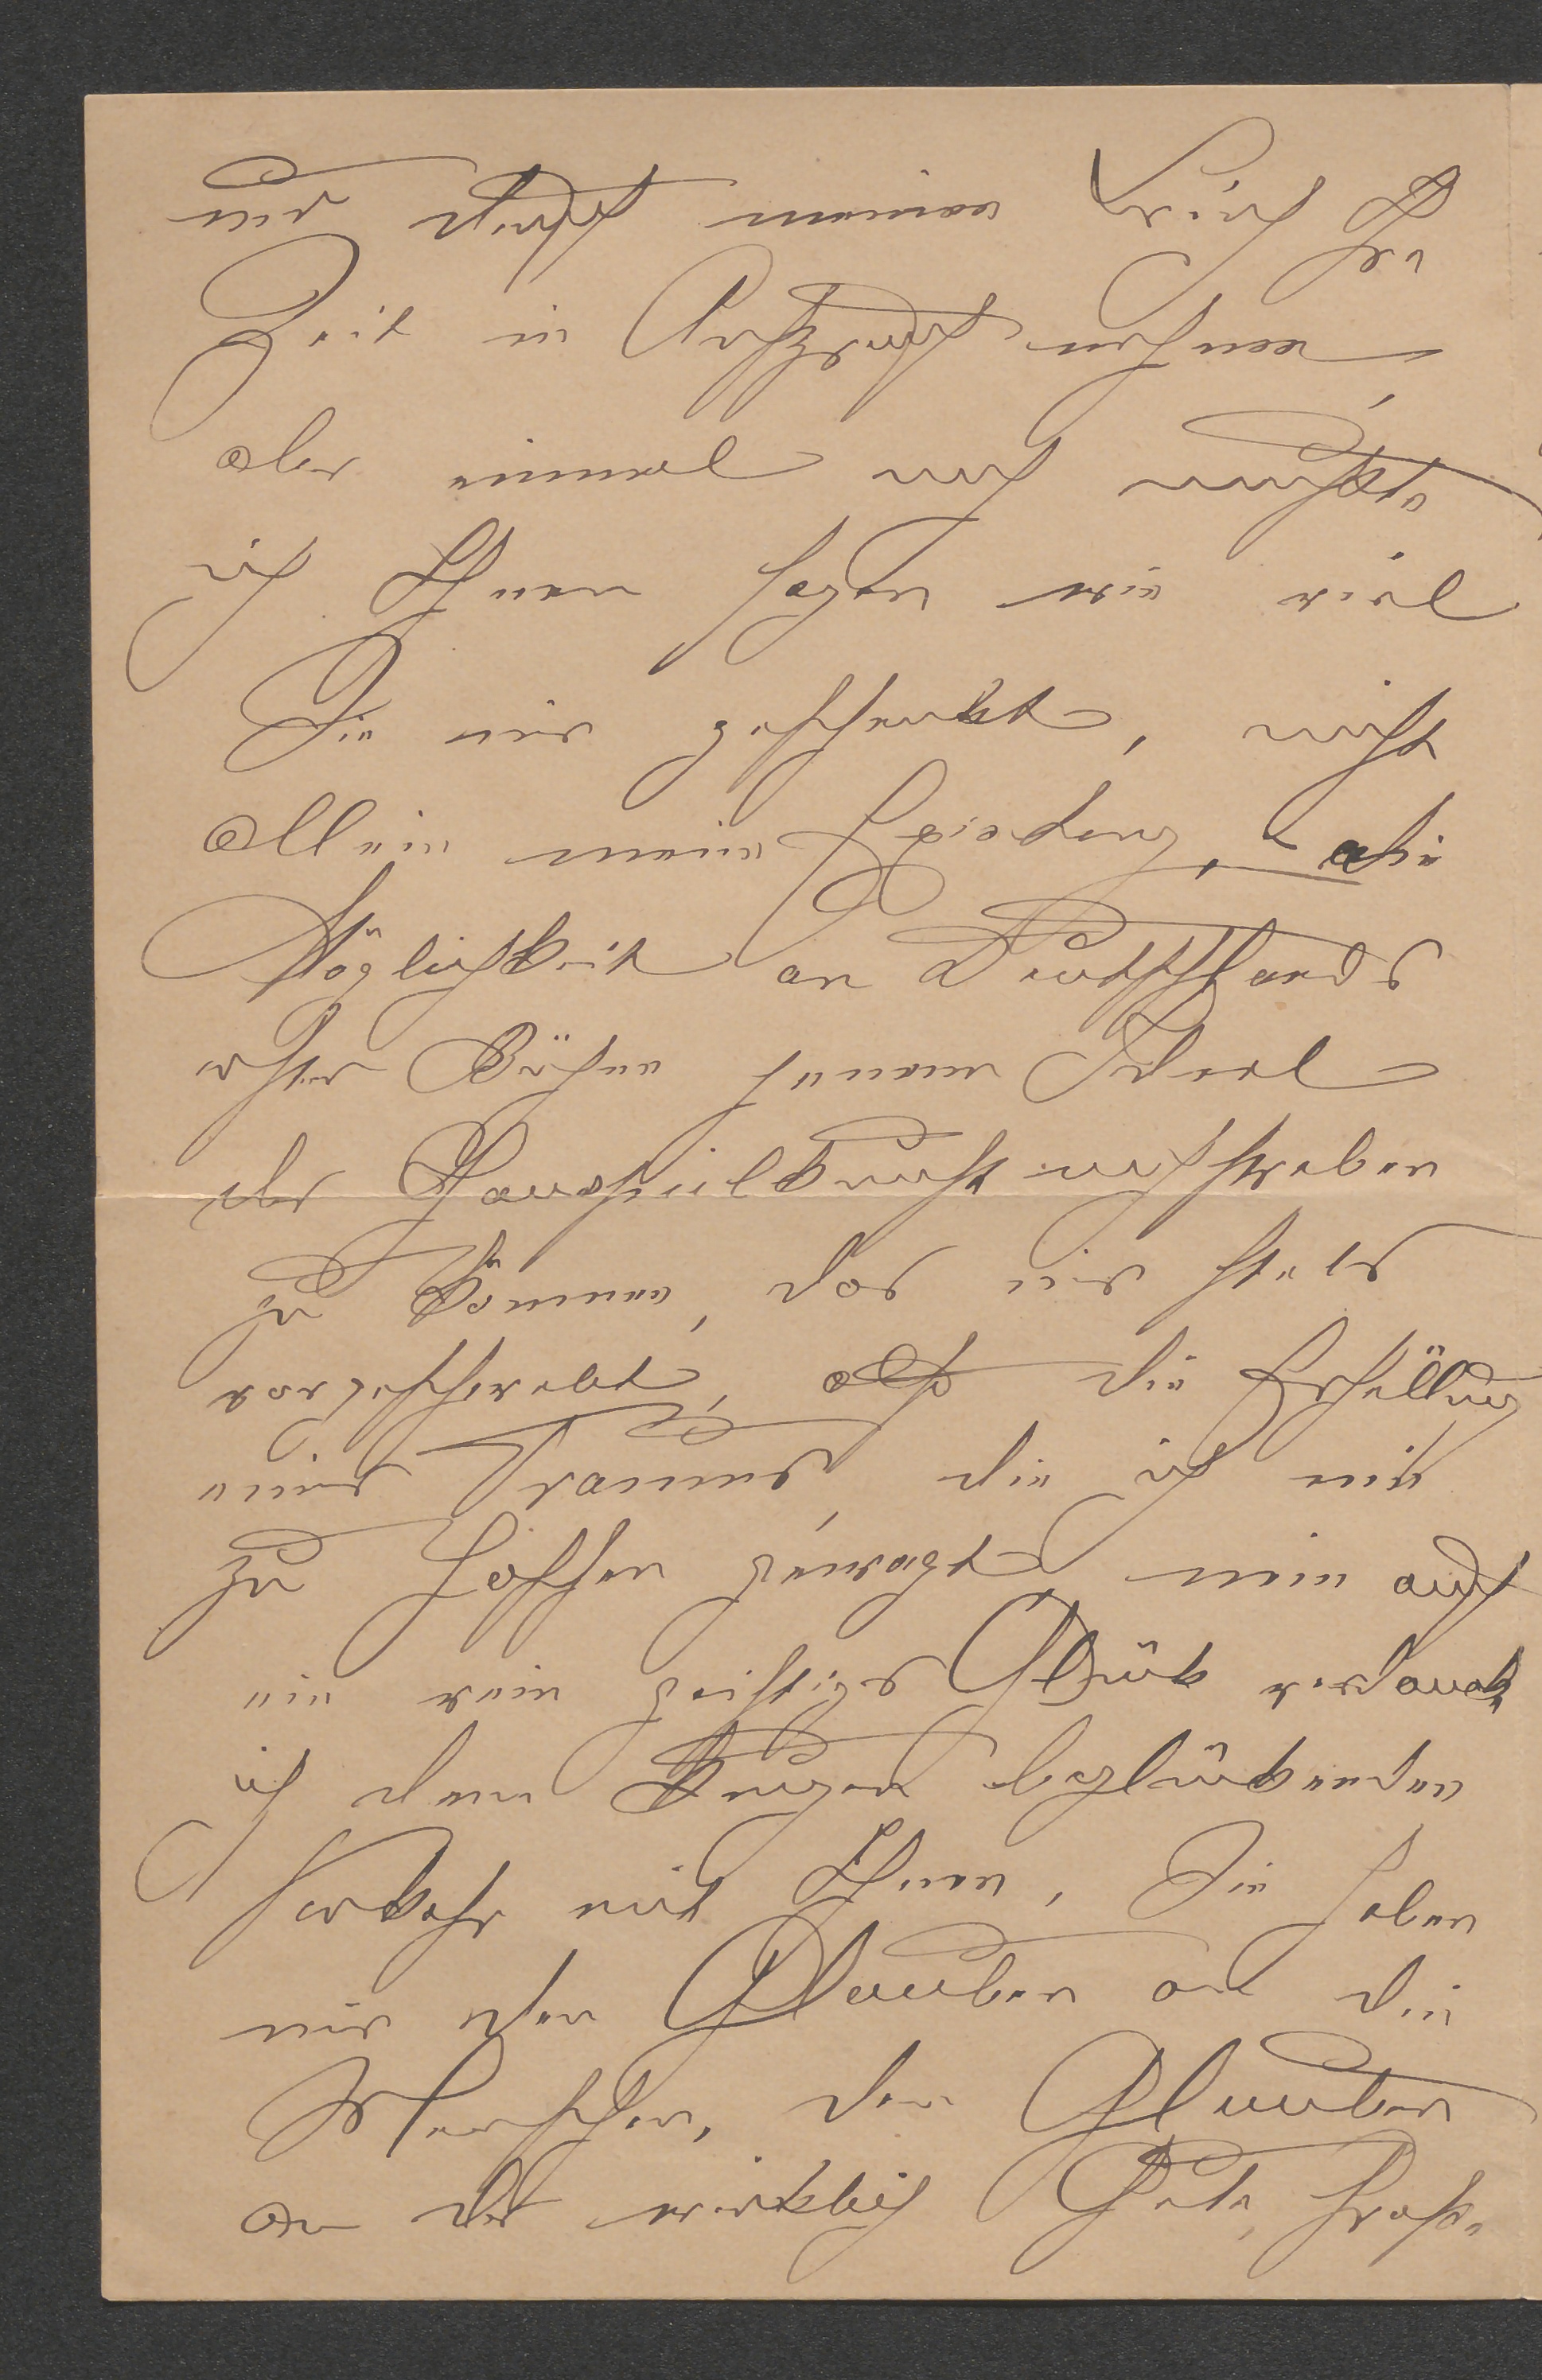 und
Zeit in Anspruch nehmen,
aber einmal noch mußte
ich Ihnen sagen wie viel
Sie mir geschenkt, nicht
allein meine Existenz, die
Möglichkeit an Deutschlands
erster Bühne jenem Ideal
der Schauspielkunst nachstreben
zu können, das mir stets
vorgeschwebt, also die Erfüllung
eines Traumes, die ich nie
zu hoffen gewagt, nein auch
ein rein geistiges Glück verdank
ich dem kurzen beglückenden
Verkehr mit Ihnen, Sie haben
mir den Glauben an die
Menschen, den Glauben
an das wirklich Gute, Große